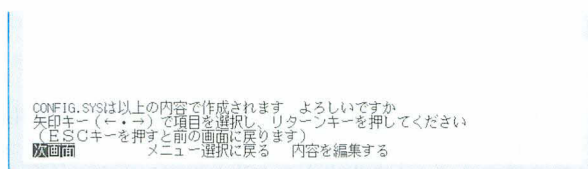 CONFIG.SYSは以上の内容で作成されます　よろしいですか
矢印キー（←・→）で項目を選択し、リターンキーを押してください
（ＥＳＣキーを押すと前の画面に戻ります）
次画面　　　　　メニュー選択に戻る　内容を編集する